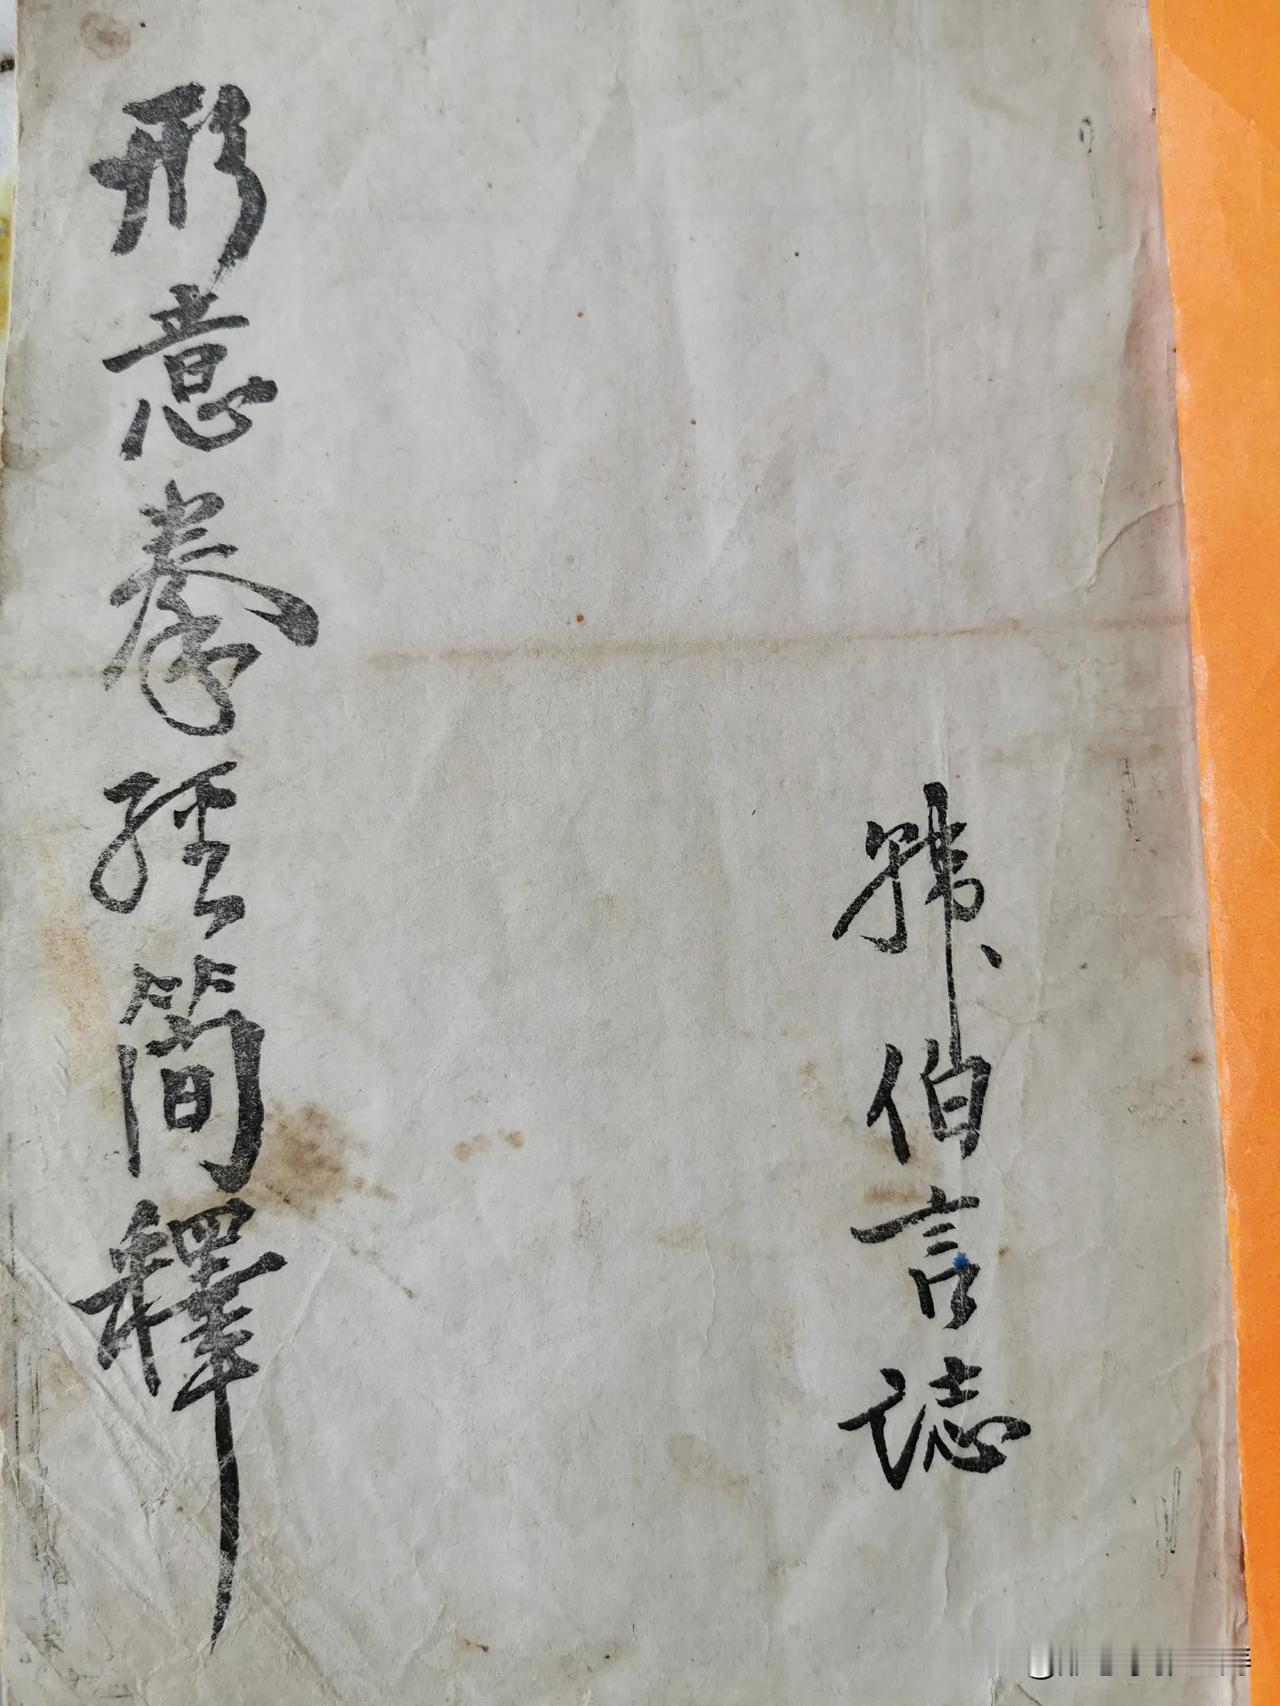 韩伯言誌
形意拳經简釋